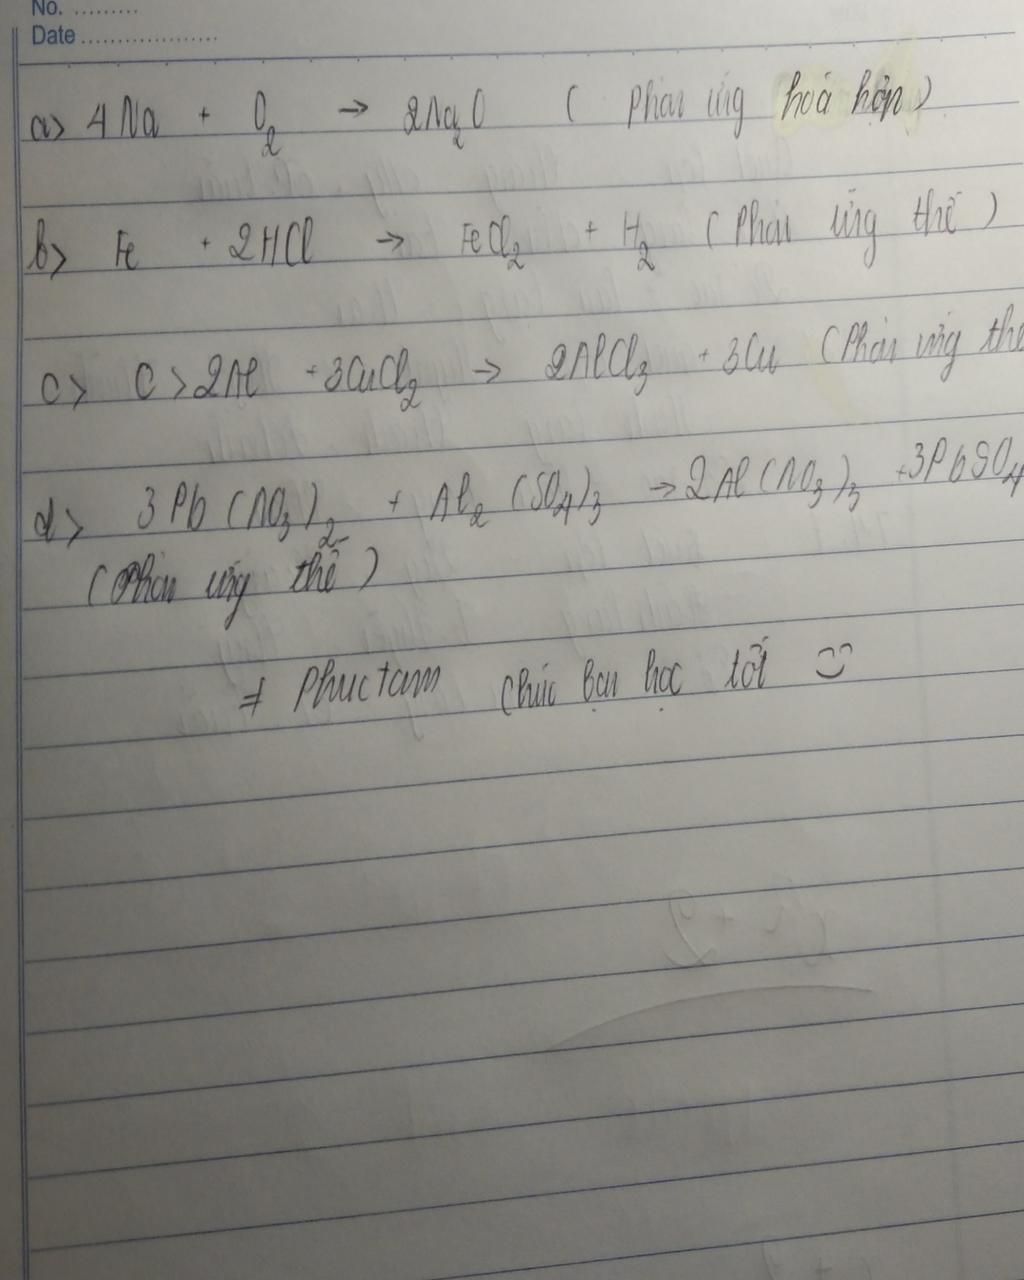 No. .........
Date ...................
a> 4 Na + O₂ → 2Na₂O ( Phản ứng hoá hợp )
b> Fe + 2HCl → FeCl₂ + H₂ ( Phản ứng thế )
c> C > 2Al + 3CuCl₂ → 2AlCl₃ + 3Cu ( Phản ứng thế
d> 3 Pb (NO₃)₂ + Al₂ (SO₄)₃ → 2Al(NO₃)₃ + 3PbSO₄
( Phản ứng thế )
# Phuctam Chúc bạn học tốt :)